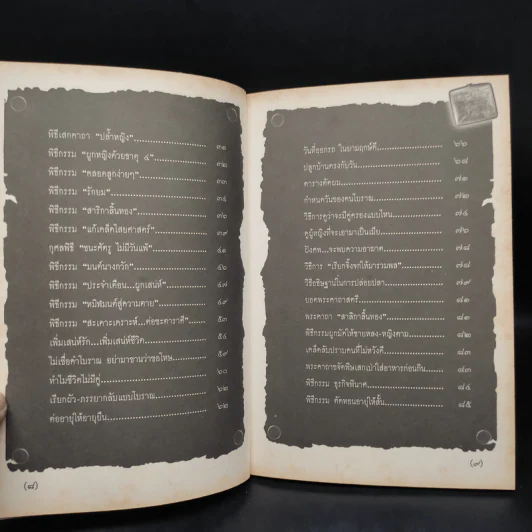 พิธีเสกคาถา "ปล้ำหญิง" ๓๑
พิธีกรรม "ผูกหญิงด้วยธาตุ ๔" ๓๒
พิธีกรรม "คลอดลูกง่ายๆ" ๓๓
พิธีกรรม "รักยม" ๓๔
พิธีกรรม "สาริกาลิ้นทอง" ๓๖
พิธีกรรม "แก้เคล็ดไสยศาสตร์" ๓๙
กุศลพิธี "ชนะศัตรู ไม่มีวันแพ้" ๔๑
พิธีกรรม "มนต์นางกวัก" ๔๖
พิธีกรรม "ประจำเดือน...ผูกเสน่ห์" ๔๗
พิธีกรรม "หมิ่นมนต์สู่ความตาย" ๔๙
พิธีกรรม "สะเดาะเคราะห์...ต่อชะตาราศี" ๕๓
เพิ่มเสน่ห์รัก...เพิ่มเสน่ห์ชีวิต ๕๔
ไม่เชื่อตำโบราณ อย่ามาขานว่าขอโทษ ๕๙
ทำไมชีวิตไม่มีคู่ ๖๐
เรียกผัว-ภรรยากลับแบบโบราณ ๖๒
ต่ออายุให้อายุยืน ๖๒
(๘)
วันที่ออกรถ ในยามฤกษ์ดี ๖๖
ปลูกบ้านตรงกับวัน ๖๘
ตารางตัดผม ๗๑
กำหนดวันของคนโบราณ ๗๓
วิธีการดูว่าจะมีคู่ครองแบบไหน ๗๔
ดูผู้หญิงที่จะเอามาเป็นเมีย ๗๗
ฝังศพ...จะพบความอาฆาต ๗๘
วิธีการ "เรียกจิ้งจกให้มารวมพล" ๗๘
วิธีอธิษฐานในการปล่อยปลา ๗๙
บอดพระคาถาสตรี ๘๑
พระคาถา "สาลิกาลิ้นทอง" ๘๑
พิธีกรรมผูกมัดให้ชายหลง-หญิงตาม ๘๒
เคล็ดลับปราบคนที่ไม่หวังดี ๘๓
พระคาถาขจัดพิษเสกเป่าใส่อาหารก่อนกิน ๘๓
พิธีกรรม ธุรกิจพินาศ ๘๔
พิธีกรรม ตัดทอนอายุให้สั้น ๘๕
(๙)